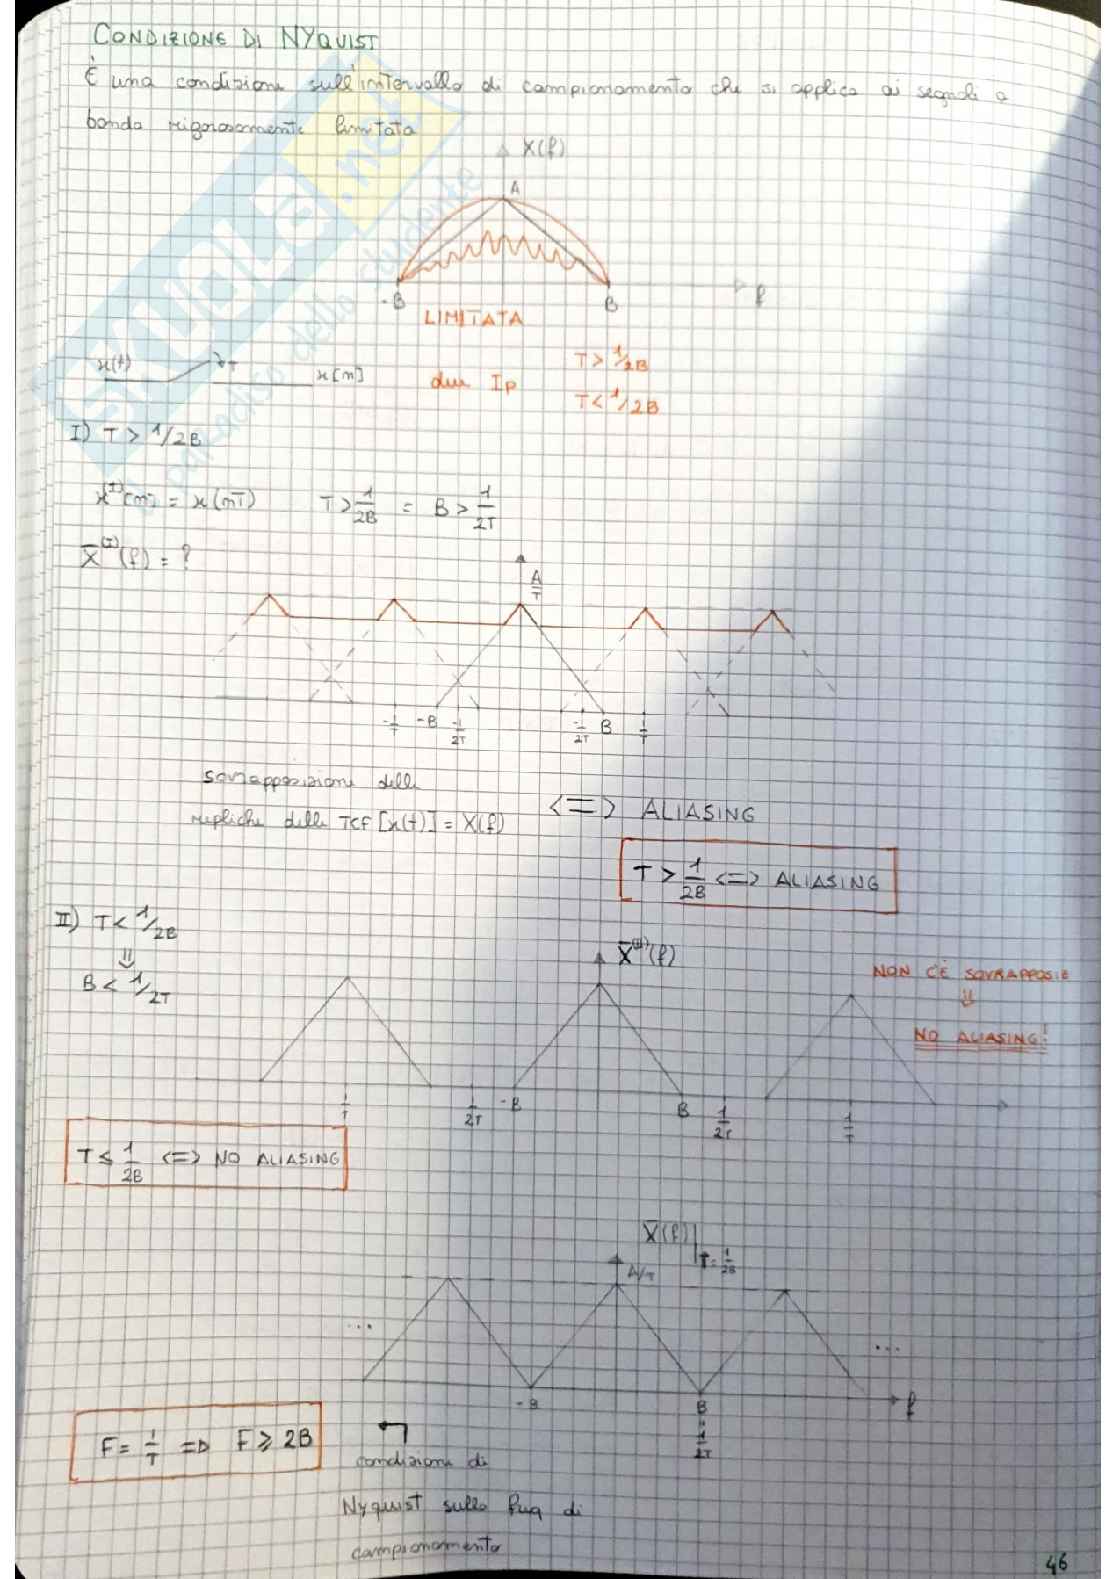 CONDIZIONE DI NYQUIST
È una condizione sull'intervallo di campionamento che si applica ai segnali a
banda rigorosamente limitata
X(f)
A
-B B f
LIMITATA
x(t) T x[n]
due Ip
T > 1/2B
T < 1/2B
I) T > 1/2B
x^(I)[n] = x(nT) T > 1/2B = B > 1/2T
X̄^(I)(f) = ?
A/T
-1/T -B -1/2T -1/2T B 1/T
sovrapposizione delle
repliche della TCF [x(t)] = X(f) <=> ALIASING
T > 1/2B <=> ALIASING
II) T < 1/2B
⇓
B < 1/2T
X̄^(II)(f)
NON C'È SOVRAPPOSIE
⇓
NO ALIASING!
1/T 1/2T -B B 1/2T 1/T
T ≤ 1/2B <=> NO ALIASING
X̄(f)| T = 1/2B
A/T
... ...
-B B f
"
1/2T
F = 1/T => F ≥ 2B
condizione di
Nyquist sulla frq di
campionamento
46
SKUOLA.net
il paradiso dello studente